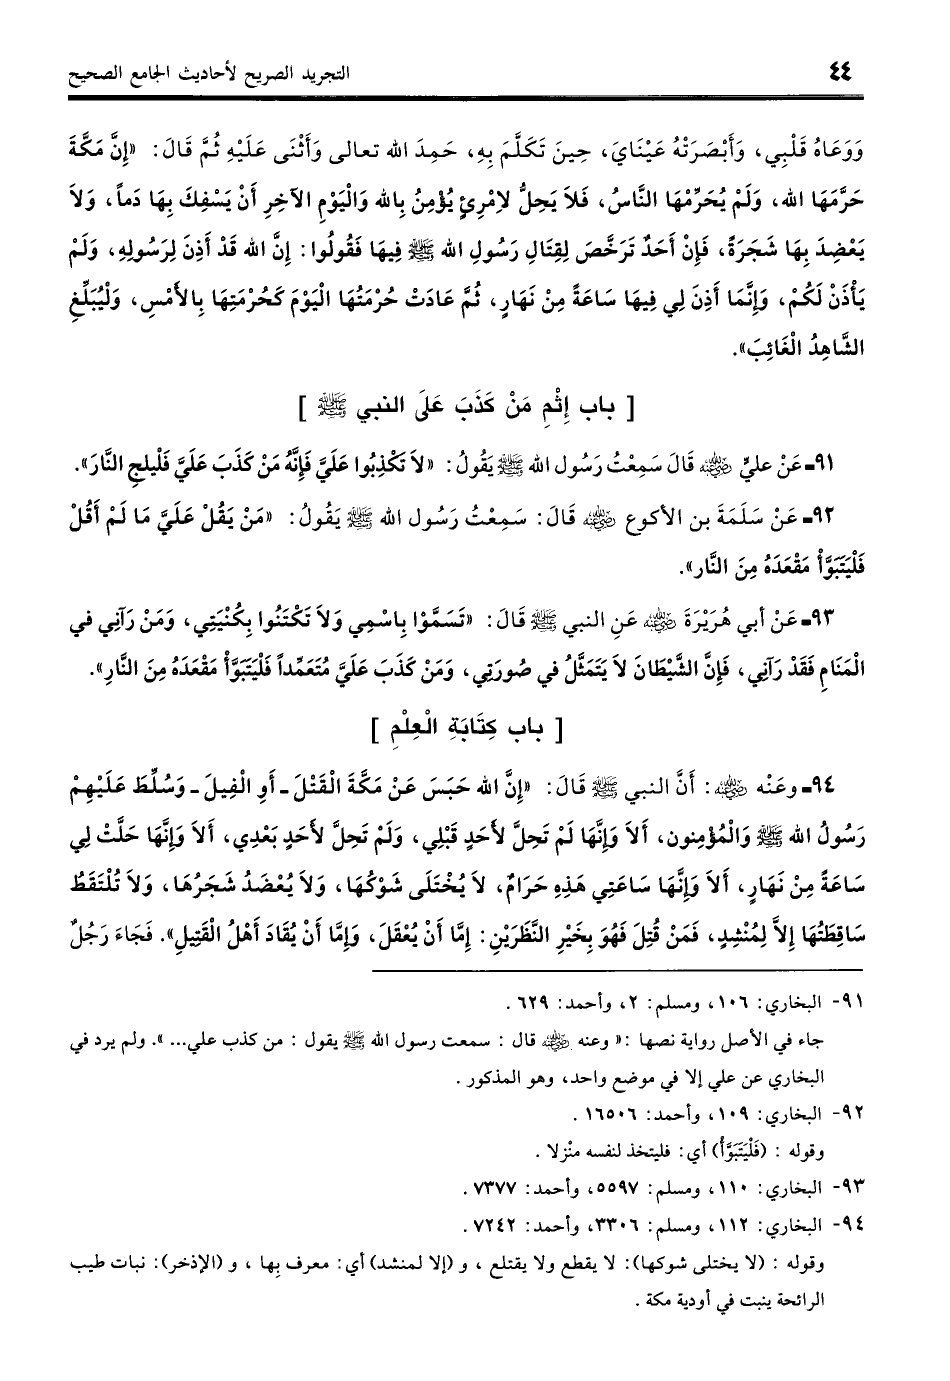 ٤٤ التجريد الصريح لأحاديث الجامع الصحيح
وَوَعَاهُ قَلْبِي، وَأَبْصَرَتْهُ عَيْنَايَ، حِينَ تَكَلَّمَ بِهِ، حَمِدَ الله تعالى وَأَثْنَى عَلَيْهِ ثُمَّ قَالَ: «إِنَّ مَكَّةَ
حَرَّمَهَا الله، وَلَمْ يُحَرِّمْهَا النَّاسُ، فَلاَ يَحِلُّ لاِمْرِئٍ يُؤْمِنُ بِالله وَالْيَوْمِ الآخِرِ أَنْ يَسْفِكَ بِهَا دَماً، وَلاَ
يَعْضِدَ بِهَا شَجَرَةً، فَإِنْ أَحَدٌ تَرَخَّصَ لِقِتَالِ رَسُولِ الله ﷺ فِيهَا فَقُولُوا: إِنَّ الله قَدْ أَذِنَ لِرَسُولِهِ، وَلَمْ
يَأْذَنْ لَكُمْ، وَإِنَّمَا أَذِنَ لِي فِيهَا سَاعَةً مِنْ نَهَارٍ، ثُمَّ عَادَتْ حُرْمَتُهَا الْيَوْمَ كَحُرْمَتِهَا بِالأَمْسِ، وَلْيُبَلِّغِ
الشَّاهِدُ الْغَائِبَ».
[ باب إِثْمِ مَنْ كَذَبَ عَلَى النبي ﷺ ]
٩١ـ عَنْ عليٍّ رضي الله عنه قَالَ سَمِعْتُ رَسُول الله ﷺ يَقُولُ: «لاَ تَكْذِبُوا عَلَيَّ فَإِنَّهُ مَنْ كَذَبَ عَلَيَّ فَلْيلجِ النَّارَ».
٩٢ـ عَنْ سَلَمَةَ بن الأكوع رضي الله عنه قَالَ: سَمِعْتُ رَسُول الله ﷺ يَقُولُ: «مَنْ يَقُلْ عَلَيَّ مَا لَمْ أَقُلْ
فَلْيَتَبَوَّأْ مَقْعَدَهُ مِنَ النَّار».
٩٣ـ عَنْ أبي هُرَيْرَةَ رضي الله عنه عَنِ النبي ﷺ قَالَ: «تَسَمَّوْا بِاسْمِي وَلاَ تَكْتَنُوا بِكُنْيَتِي، وَمَنْ رَآنِي في
الْمَنَامِ فَقَدْ رَآنِي، فَإِنَّ الشَّيْطَانَ لاَ يَتَمَثَّلُ في صُورَتِي، وَمَنْ كَذَبَ عَلَيَّ مُتَعَمِّداً فَلْيَتَبَوَّأْ مَقْعَدَهُ مِنَ النَّارِ».
[ باب كِتَابَةِ الْعِلْمِ ]
٩٤ـ وعَنْه رضي الله عنه: أَنَّ النبي ﷺ قَالَ: «إِنَّ الله حَبَسَ عَنْ مَكَّةَ الْقَتْلَ ـ أَوِ الْفِيلَ ـ وَسُلِّطَ عَلَيْهِمْ
رَسُولُ الله ﷺ وَالْمُؤْمِنون، أَلاَ وَإِنَّهَا لَمْ تَحِلَّ لأَحَدٍ قَبْلِي، وَلَمْ تَحِلَّ لأَحَدٍ بَعْدِي، أَلاَ وَإِنَّهَا حَلَّتْ لِي
سَاعَةً مِنْ نَهَارٍ، أَلاَ وَإِنَّهَا سَاعَتِي هَذِهِ حَرَامٌ، لاَ يُخْتَلَى شَوْكُهَا، وَلاَ يُعْضَدُ شَجَرُهَا، وَلاَ تُلْتَقَطُ
سَاقِطَتُهَا إِلاَّ لِمُنْشِدٍ، فَمَنْ قُتِلَ فَهُوَ بِخَيْرِ النَّظَرَيْنِ: إِمَّا أَنْ يُعْقَلَ، وَإِمَّا أَنْ يُقَادَ أَهْلُ الْقَتِيلِ». فَجَاءَ رَجُلٌ
٩١- البخاري: ١٠٦، ومسلم: ٢، وأحمد: ٦٢٩ .
جاء في الأصل رواية نصها :« وعنه رضي الله عنه قال : سمعت رسول الله ﷺ يقول : من كذب علي... ». ولم يرد في
البخاري عن علي إلا في موضع واحد، وهو المذكور .
٩٢- البخاري: ١٠٩، وأحمد: ١٦٥٠٦ .
وقوله : (فَلْيَتَبَوَّأْ) أي: فليتخذ لنفسه منْزلا .
٩٣- البخاري: ١١٠، ومسلم: ٥٥٩٧، وأحمد: ٧٣٧٧ .
٩٤- البخاري: ١١٢، ومسلم: ٣٣٠٦، وأحمد: ٧٢٤٢ .
وقوله : (لا يختلى شوكها): لا يقطع ولا يقتلع ، و (إلا لمنشد) أي: معرف بِها ، و (الإذخر): نبات طيب
الرائحة ينبت في أودية مكة .